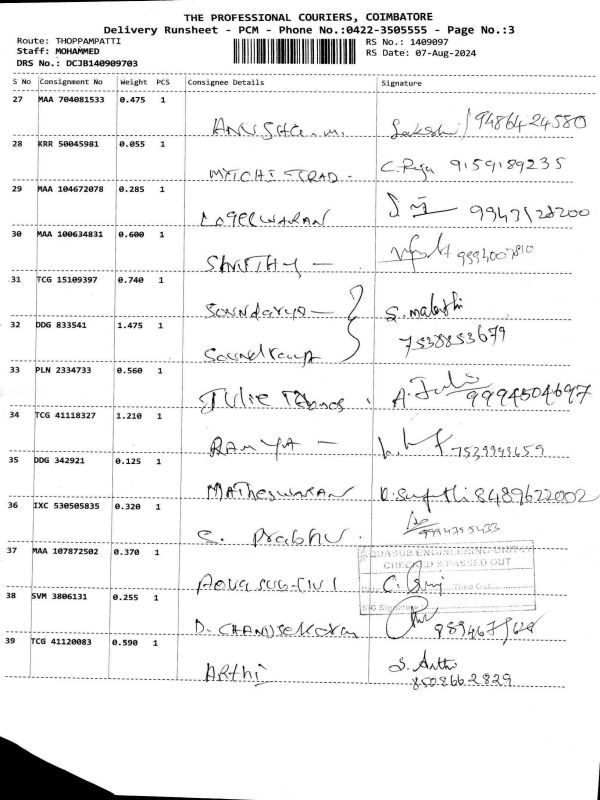 THE PROFESSIONAL COURIERS, COIMBATORE
Delivery Runsheet - PCM - Phone No.:0422-3505555 - Page No.:3
Route: THOPPAMPATTI
RS No.: 1409097
Staff: MOHAMMED
RS Date: 07-Aug-2024
DRS No.: DCJB140909703
S No Consignment No Weight PCS Consignee Details Signature
27 MAA 704081533 0.475 1
ANUSHA.M. 9486424580
28 KRR 50045981 0.055 1
C. Raja 9159189235
29 MAA 104672078 0.285 1
LOGESWARAN 9943128200
30 MAA 100634831 0.600 1
SHRUTHY -
31 TCG 15109397 0.740 1
Soundarya - S. Malathi
32 DDG 833541 1.475 1
7538853679
33 PLN 2334733 0.560 1
JULIE A. Juli 9994504697
34 TCG 41118327 1.210 1
RAMYA -
35 DDG 342921 0.125 1
MATHESWARAN 8489622002
36 IXC 530505835 0.320 1
S. Prabhu
37 MAA 107872502 0.370 1
AQUASUB ENGINEERING UNIT
CHECKED & PASSED OUT
Time Out
S/G Signature
38 SVM 3806131 0.255 1
D. CHANDSEKARAN
39 TCG 41120083 0.590 1
ARTHI S. Arthi
8508662829